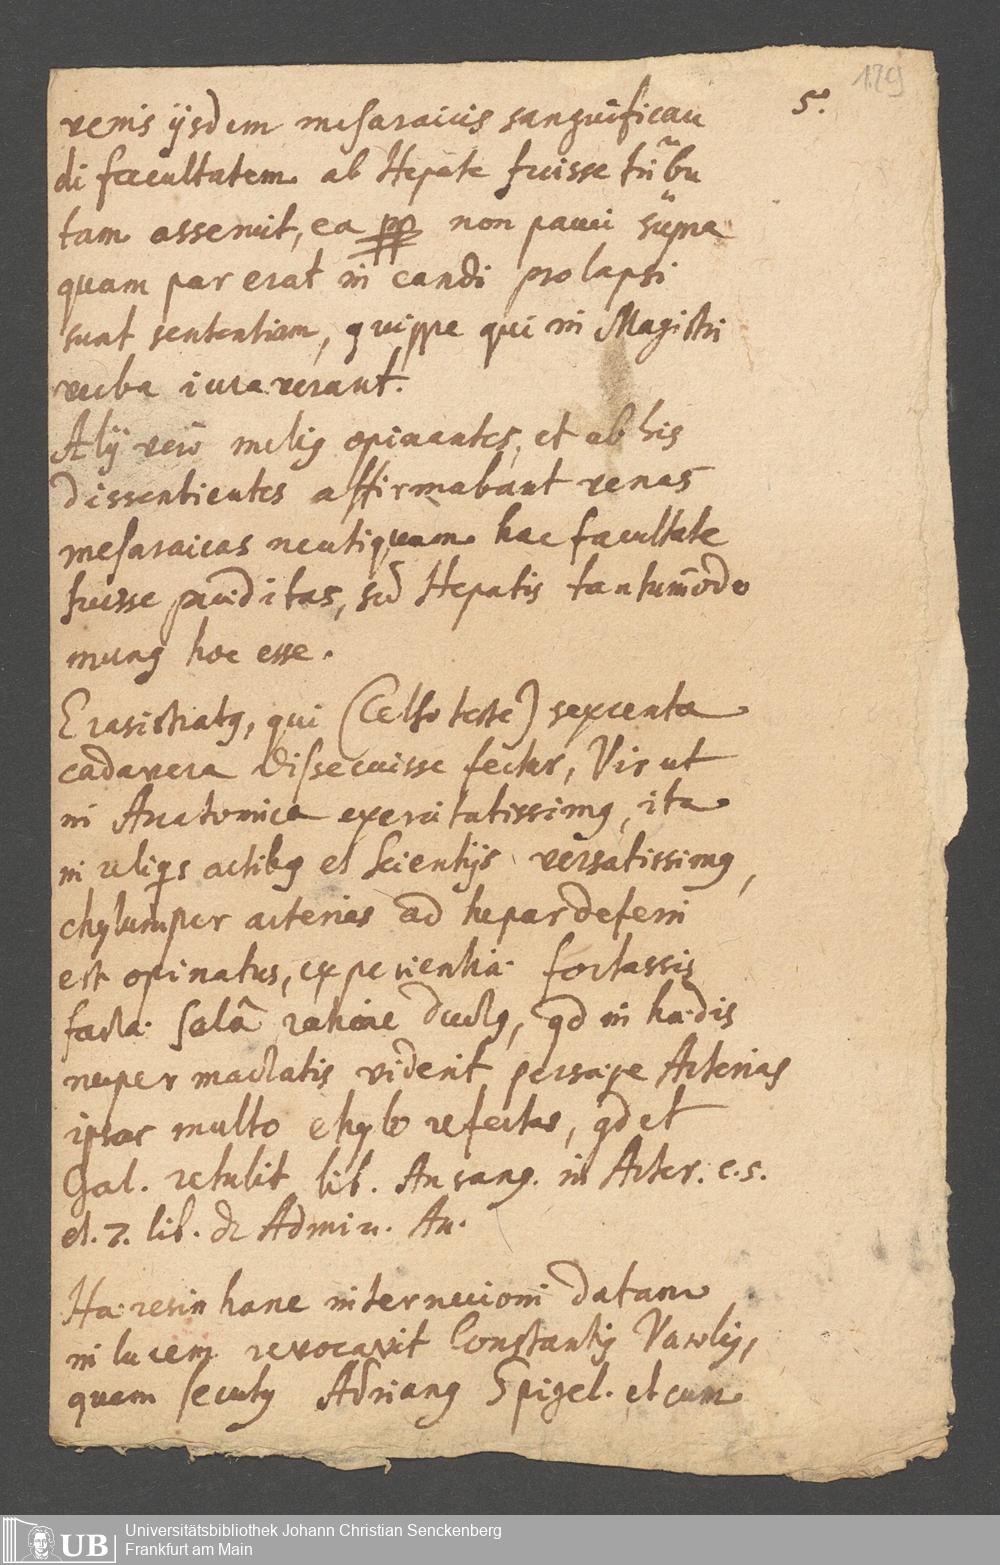 129
5.
venis ijsdem mesaraicis sanguifican
di facultatem ab Hepate fuisse tribu
tam asseruit, ea pp non pauci supra
quam par erat in eandi prolapsi
sunt sententiam, quippe qui in Magistri
verba iuraverant.
Alij verò meli9 opinantes, et ab his
dissentientes affirmabant venas
mesaraicas neutiquam hac facultate
fuisse præditas, sed Hepatis tantum̄odo
mun9 hoc esse.
Erasistrat9, qui (Celso teste) sexcenta
cadavera dissecuisse fertur, Vir ut
in Anatomica exercitatissim9, ita
in reliq̨s artib9 et Scientijs versatissim9,
chylum per arterias ad hepar deferri
est opinatus, experientia fortassis
facta solâ ratione duct9, qd in hædis
nuper mactatis viderit persæpe Arterias
ipsas multo chylo refertas, qd et
Gal. retulit lib. An sang. in Arter. c. 5.
et. 7. lib. de Admin. An.
Hæresin hanc internecioni datam
in lucem revocavit Constanti9 Varoli9,
quam secut9 Adrian9 Spigel. et cum
UB
Universitätsbibliothek Johann Christian Senckenberg
Frankfurt am Main